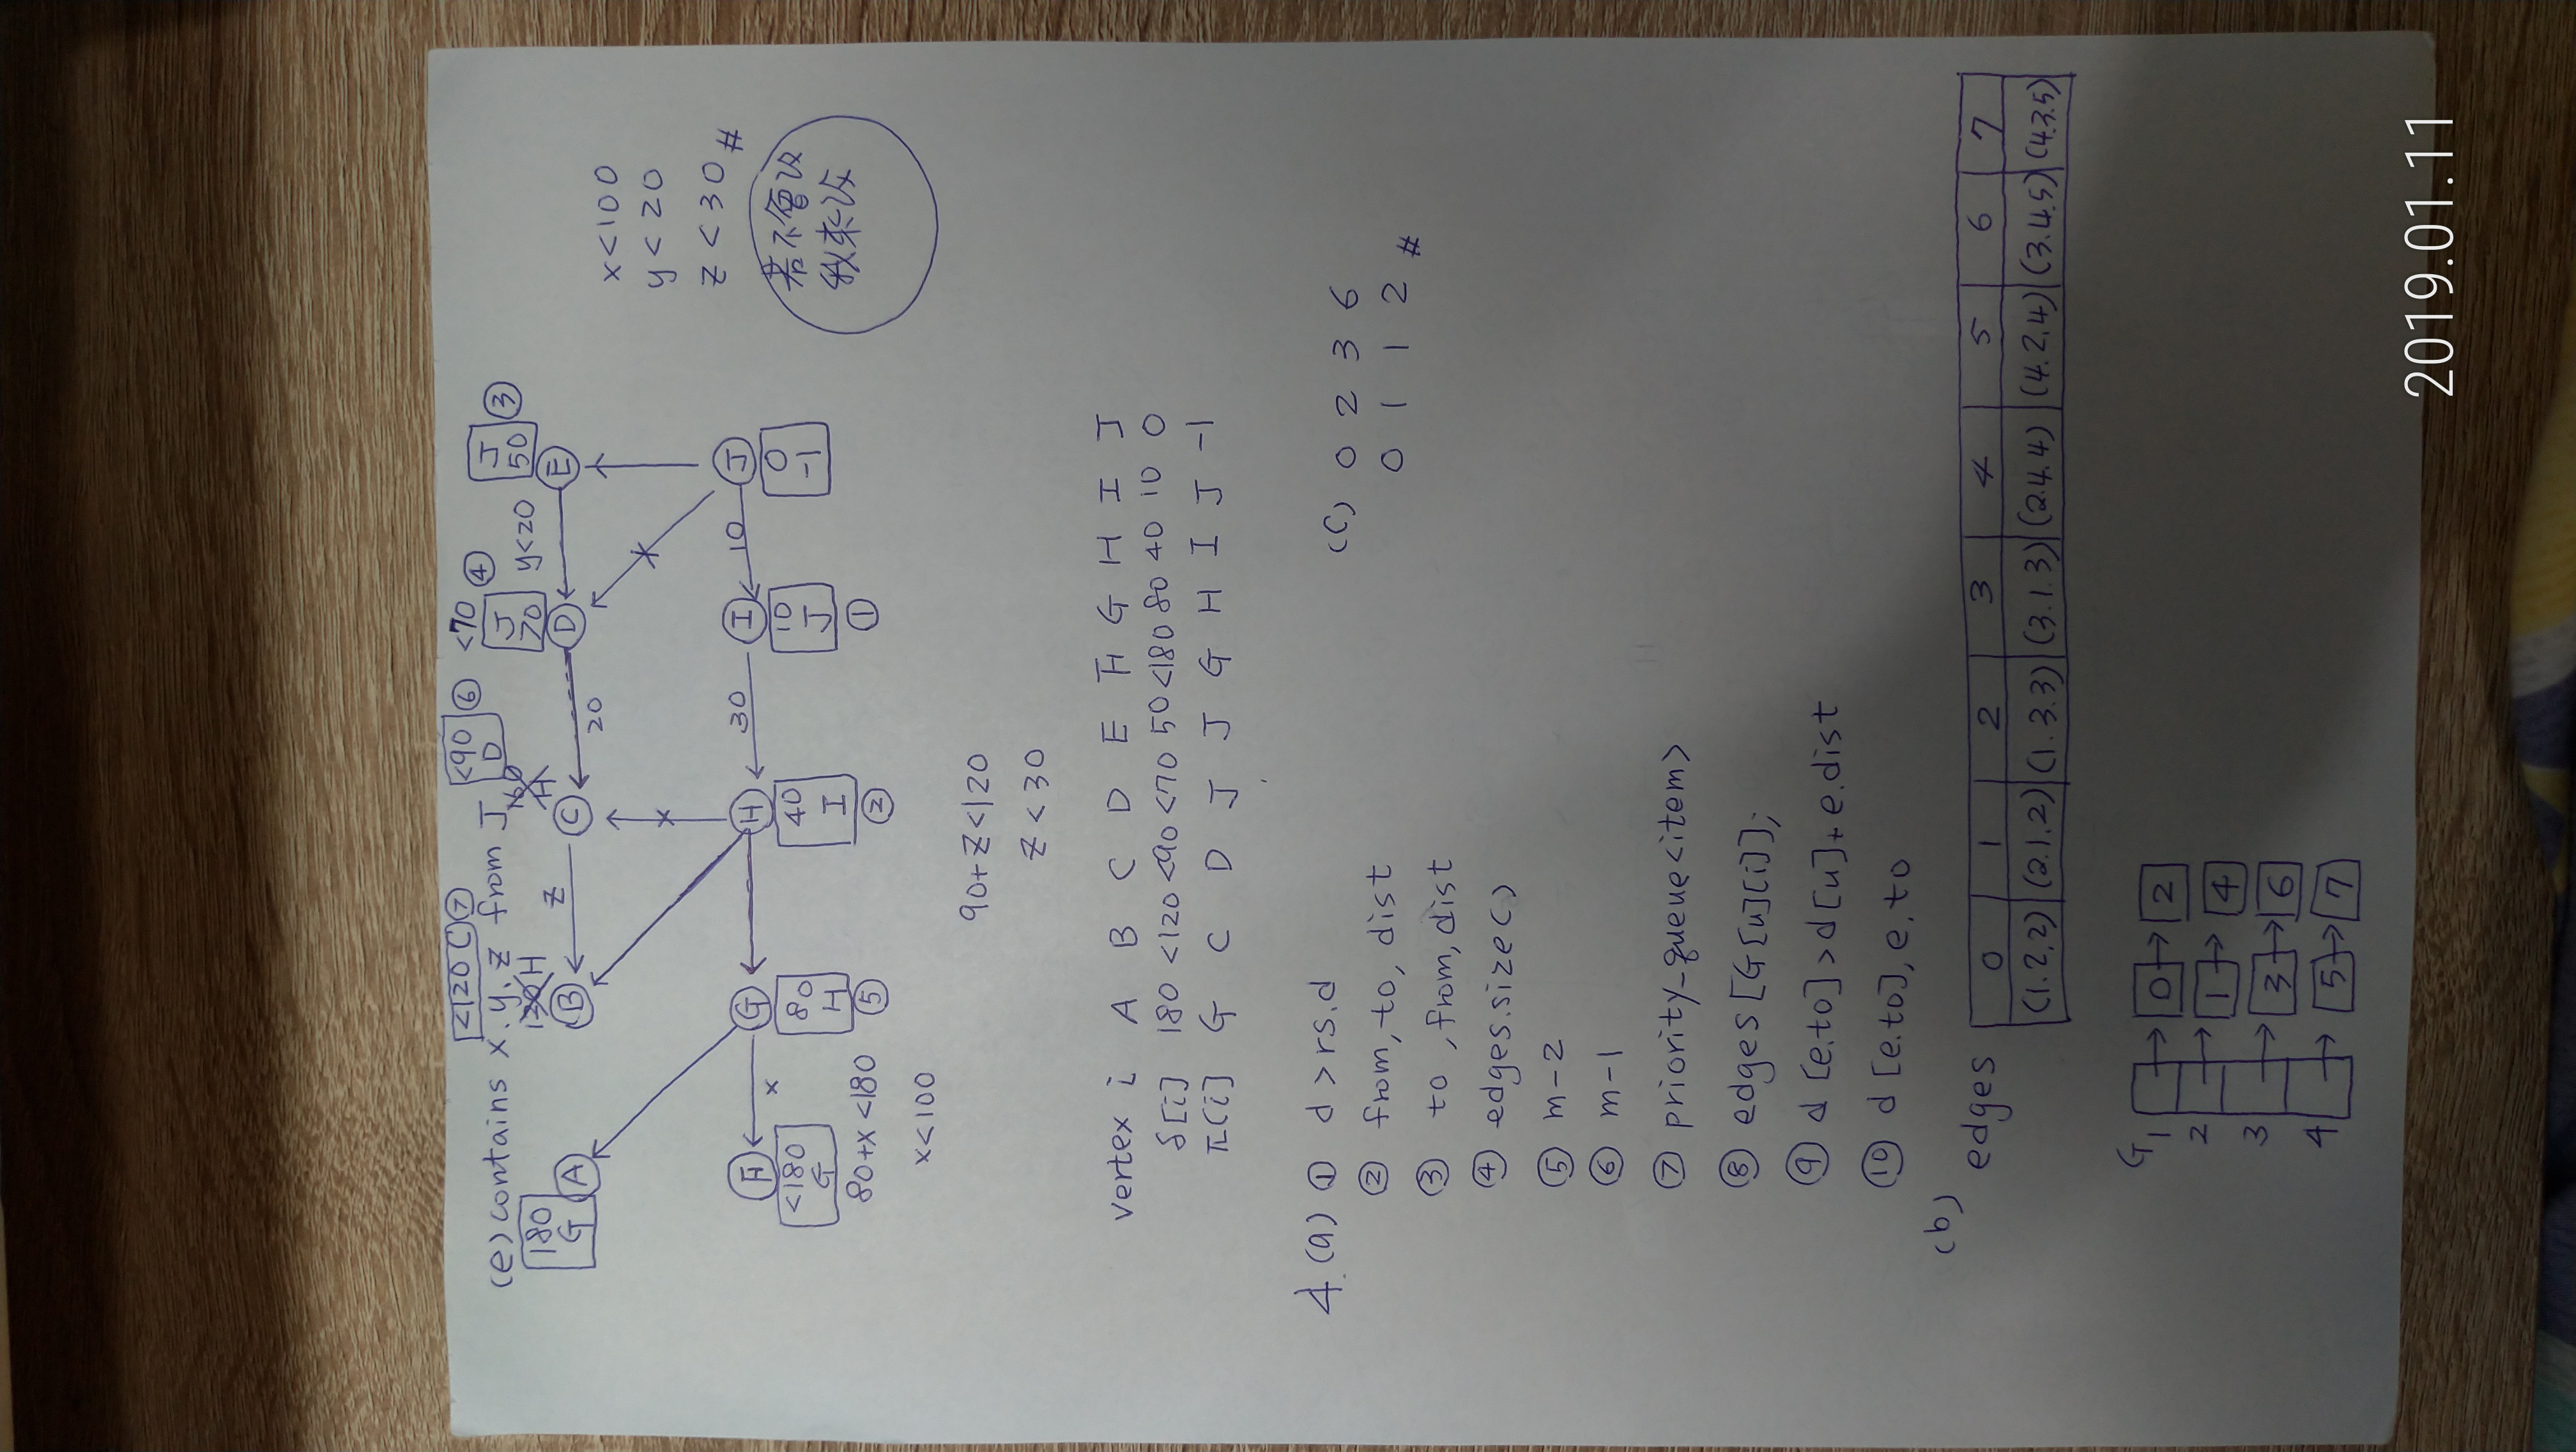 <120 C ⑦
<90 ⑥
D
<70 ④
(e) contains x.y.z from J
J
50 ③
J
70
y<20
120 H
160
H
180
G
A
B
z
C
20
D
E
x<100
y<20
z<30 #
F
x
G
H
30
I
10
J
<180
G
80
H
40
I
10
J
0
-1
若不會改
我來改
80+x<180
⑤
②
①
x<100
90+z<120
z<30
vertex i A B C D E F G H I J
δ[i] 180 <120 <90 <70 50 <180 80 40 10 0
π[i] G C D J J G H I J -1
4.(a) ① d>rs.d
② from,to,dist
③ to,from,dist
④ edges.size()
⑤ m-2
⑥ m-1
⑦ priority_queue<item>
⑧ edges[G[u][i]];
⑨ d[e.to]>d[u]+e.dist
⑩ d[e.to],e.to
(c) 0 2 3 6
0 1 1 2 #
(b)
edges 0 1 2 3 4 5 6 7
(1.2.2) (2.1.2) (1.3.3) (3.1.3) (2.4.4) (4.2.4) (3.4.5) (4.3.5)
G
1 0 2
2 1 4
3 3 6
4 5 7
2019.01.11